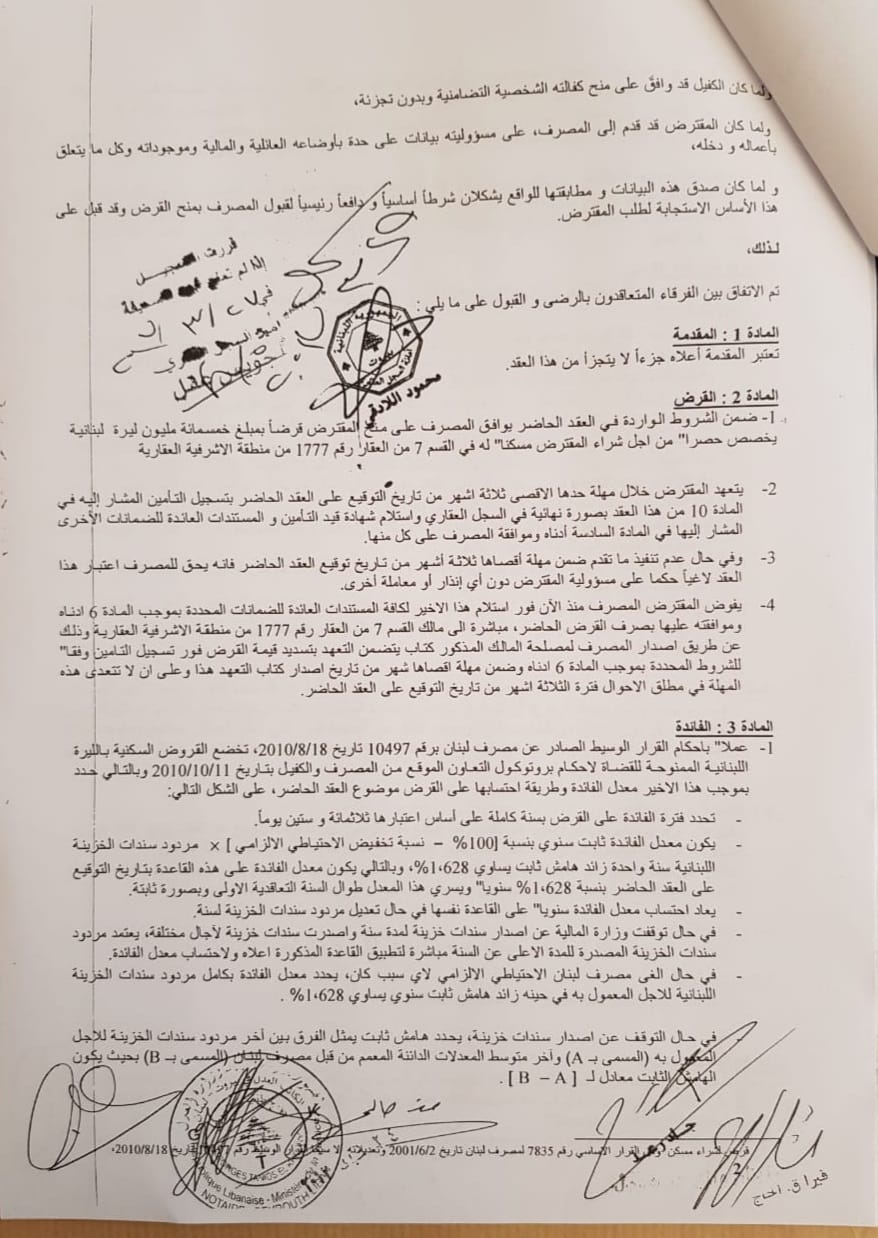 ولما كان الكفيل قد وافق على منح كفالته الشخصية التضامنية وبدون تجزئة،
ولما كان المقترض قد قدم إلى المصرف، على مسؤوليته بيانات على حدة بأوضاعه العائلية والمالية وموجوداته وكل ما يتعلق
بأعماله و دخله،
و لما كان صدق هذه البيانات و مطابقتها للواقع يشكلان شرطاً أساسياً و دافعاً رئيسياً لقبول المصرف بمنح القرض وقد قبل على
هذا الأساس الاستجابة لطلب المقترض.
لذلك،
قررت التسجيل
تم الاتفاق بين الفرقاء المتعاقدون بالرضى و القبول على ما يلي:
الجمهورية اللبنانية
بيروت
محمود اللادقي
المادة 1 : المقدمة
تعتبر المقدمة أعلاه جزءاً لا يتجزأ من هذا العقد.
المادة 2 : القرض
1- ضمن الشروط الواردة في العقد الحاضر يوافق المصرف على منح المقترض قرضاً بمبلغ خمسمائة مليون ليرة لبنانية
يخصص حصرا" من اجل شراء المقترض مسكنا" له في القسم 7 من العقار رقم 1777 من منطقة الاشرفية العقارية
2- يتعهد المقترض خلال مهلة حدها الاقصى ثلاثة اشهر من تاريخ التوقيع على العقد الحاضر بتسجيل التأمين المشار إليه في
المادة 10 من هذا العقد بصورة نهائية في السجل العقاري واستلام شهادة قيد التأمين و المستندات العائدة للضمانات الأخرى
المشار إليها في المادة السادسة أدناه وموافقة المصرف على كل منها.
3- وفي حال عدم تنفيذ ما تقدم ضمن مهلة أقصاها ثلاثة أشهر من تاريخ توقيع العقد الحاضر فانه يحق للمصرف اعتبار هذا
العقد لاغياً حكما على مسؤولية المقترض دون أي إنذار أو معاملة أخرى.
4- يفوض المقترض المصرف منذ الآن فور استلام هذا الاخير لكافة المستندات العائدة للضمانات المحددة بموجب المادة 6 ادناه
وموافقته عليها بصرف القرض الحاضر، مباشرة الى مالك القسم 7 من العقار رقم 1777 من منطقة الاشرفية العقارية وذلك
عن طريق اصدار المصرف لمصلحة المالك المذكور كتاب يتضمن التعهد بتسديد قيمة القرض فور تسجيل التامين وفقا"
للشروط المحددة بموجب المادة 6 ادناه وضمن مهلة اقصاها شهر من تاريخ اصدار كتاب التعهد هذا وعلى ان لا تتعدى هذه
المهلة في مطلق الاحوال فترة الثلاثة اشهر من تاريخ التوقيع على العقد الحاضر.
المادة 3 : الفائدة
1- عملا" باحكام القرار الوسيط الصادر عن مصرف لبنان برقم 10497 تاريخ 2010/8/18، تخضع القروض السكنية بالليرة
اللبنانية الممنوحة للقضاة لاحكام بروتوكول التعاون الموقع من المصرف والكفيل بتاريخ 2010/10/11 وبالتالي حدد
بموجب هذا الاخير معدل الفائدة وطريقة احتسابها على القرض موضوع العقد الحاضر، على الشكل التالي:
- تحدد فترة الفائدة على القرض بسنة كاملة على أساس اعتبارها ثلاثمائة و ستين يوماً.
- يكون معدل الفائدة ثابت سنوي بنسبة [100% – نسبة تخفيض الاحتياطي الالزامي ] × مردود سندات الخزينة
اللبنانية سنة واحدة زائد هامش ثابت يساوي 1،628%، وبالتالي يكون معدل الفائدة على هذه القاعدة بتاريخ التوقيع
على العقد الحاضر بنسبة 1،628% سنويا" ويسري هذا المعدل طوال السنة التعاقدية الاولى وبصورة ثابتة.
- يعاد احتساب معدل الفائدة سنويا" على القاعدة نفسها في حال تعديل مردود سندات الخزينة لسنة.
- في حال توقفت وزارة المالية عن اصدار سندات خزينة لمدة سنة واصدرت سندات خزينة لآجال مختلفة، يعتمد مردود
سندات الخزينة المصدرة للمدة الاعلى عن السنة مباشرة لتطبيق القاعدة المذكورة اعلاه ولاحتساب معدل الفائدة.
- في حال الغى مصرف لبنان الاحتياطي الالزامي لاي سبب كان، يحدد معدل الفائدة بكامل مردود سندات الخزينة
اللبنانية للاجل المعمول به في حينه زائد هامش ثابت سنوي يساوي 1،628% .
في حال التوقف عن اصدار سندات خزينة، يحدد هامش ثابت يمثل الفرق بين آخر مردود سندات الخزينة للاجل
المعمول به (المسمى بـ A) وآخر متوسط المعدلات الدائنة المعمم من قبل مصرف لبنان (المسمى بـ B) بحيث يكون
الهامش الثابت معادل لـ [ B – A ] .
قرض لشراء مسكن وفق القرار الاساسي رقم 7835 لمصرف لبنان تاريخ 2001/6/2 وتعديلاته لا سيما القرار الوسيط رقم 10497 تاريخ 2010/8/18
2